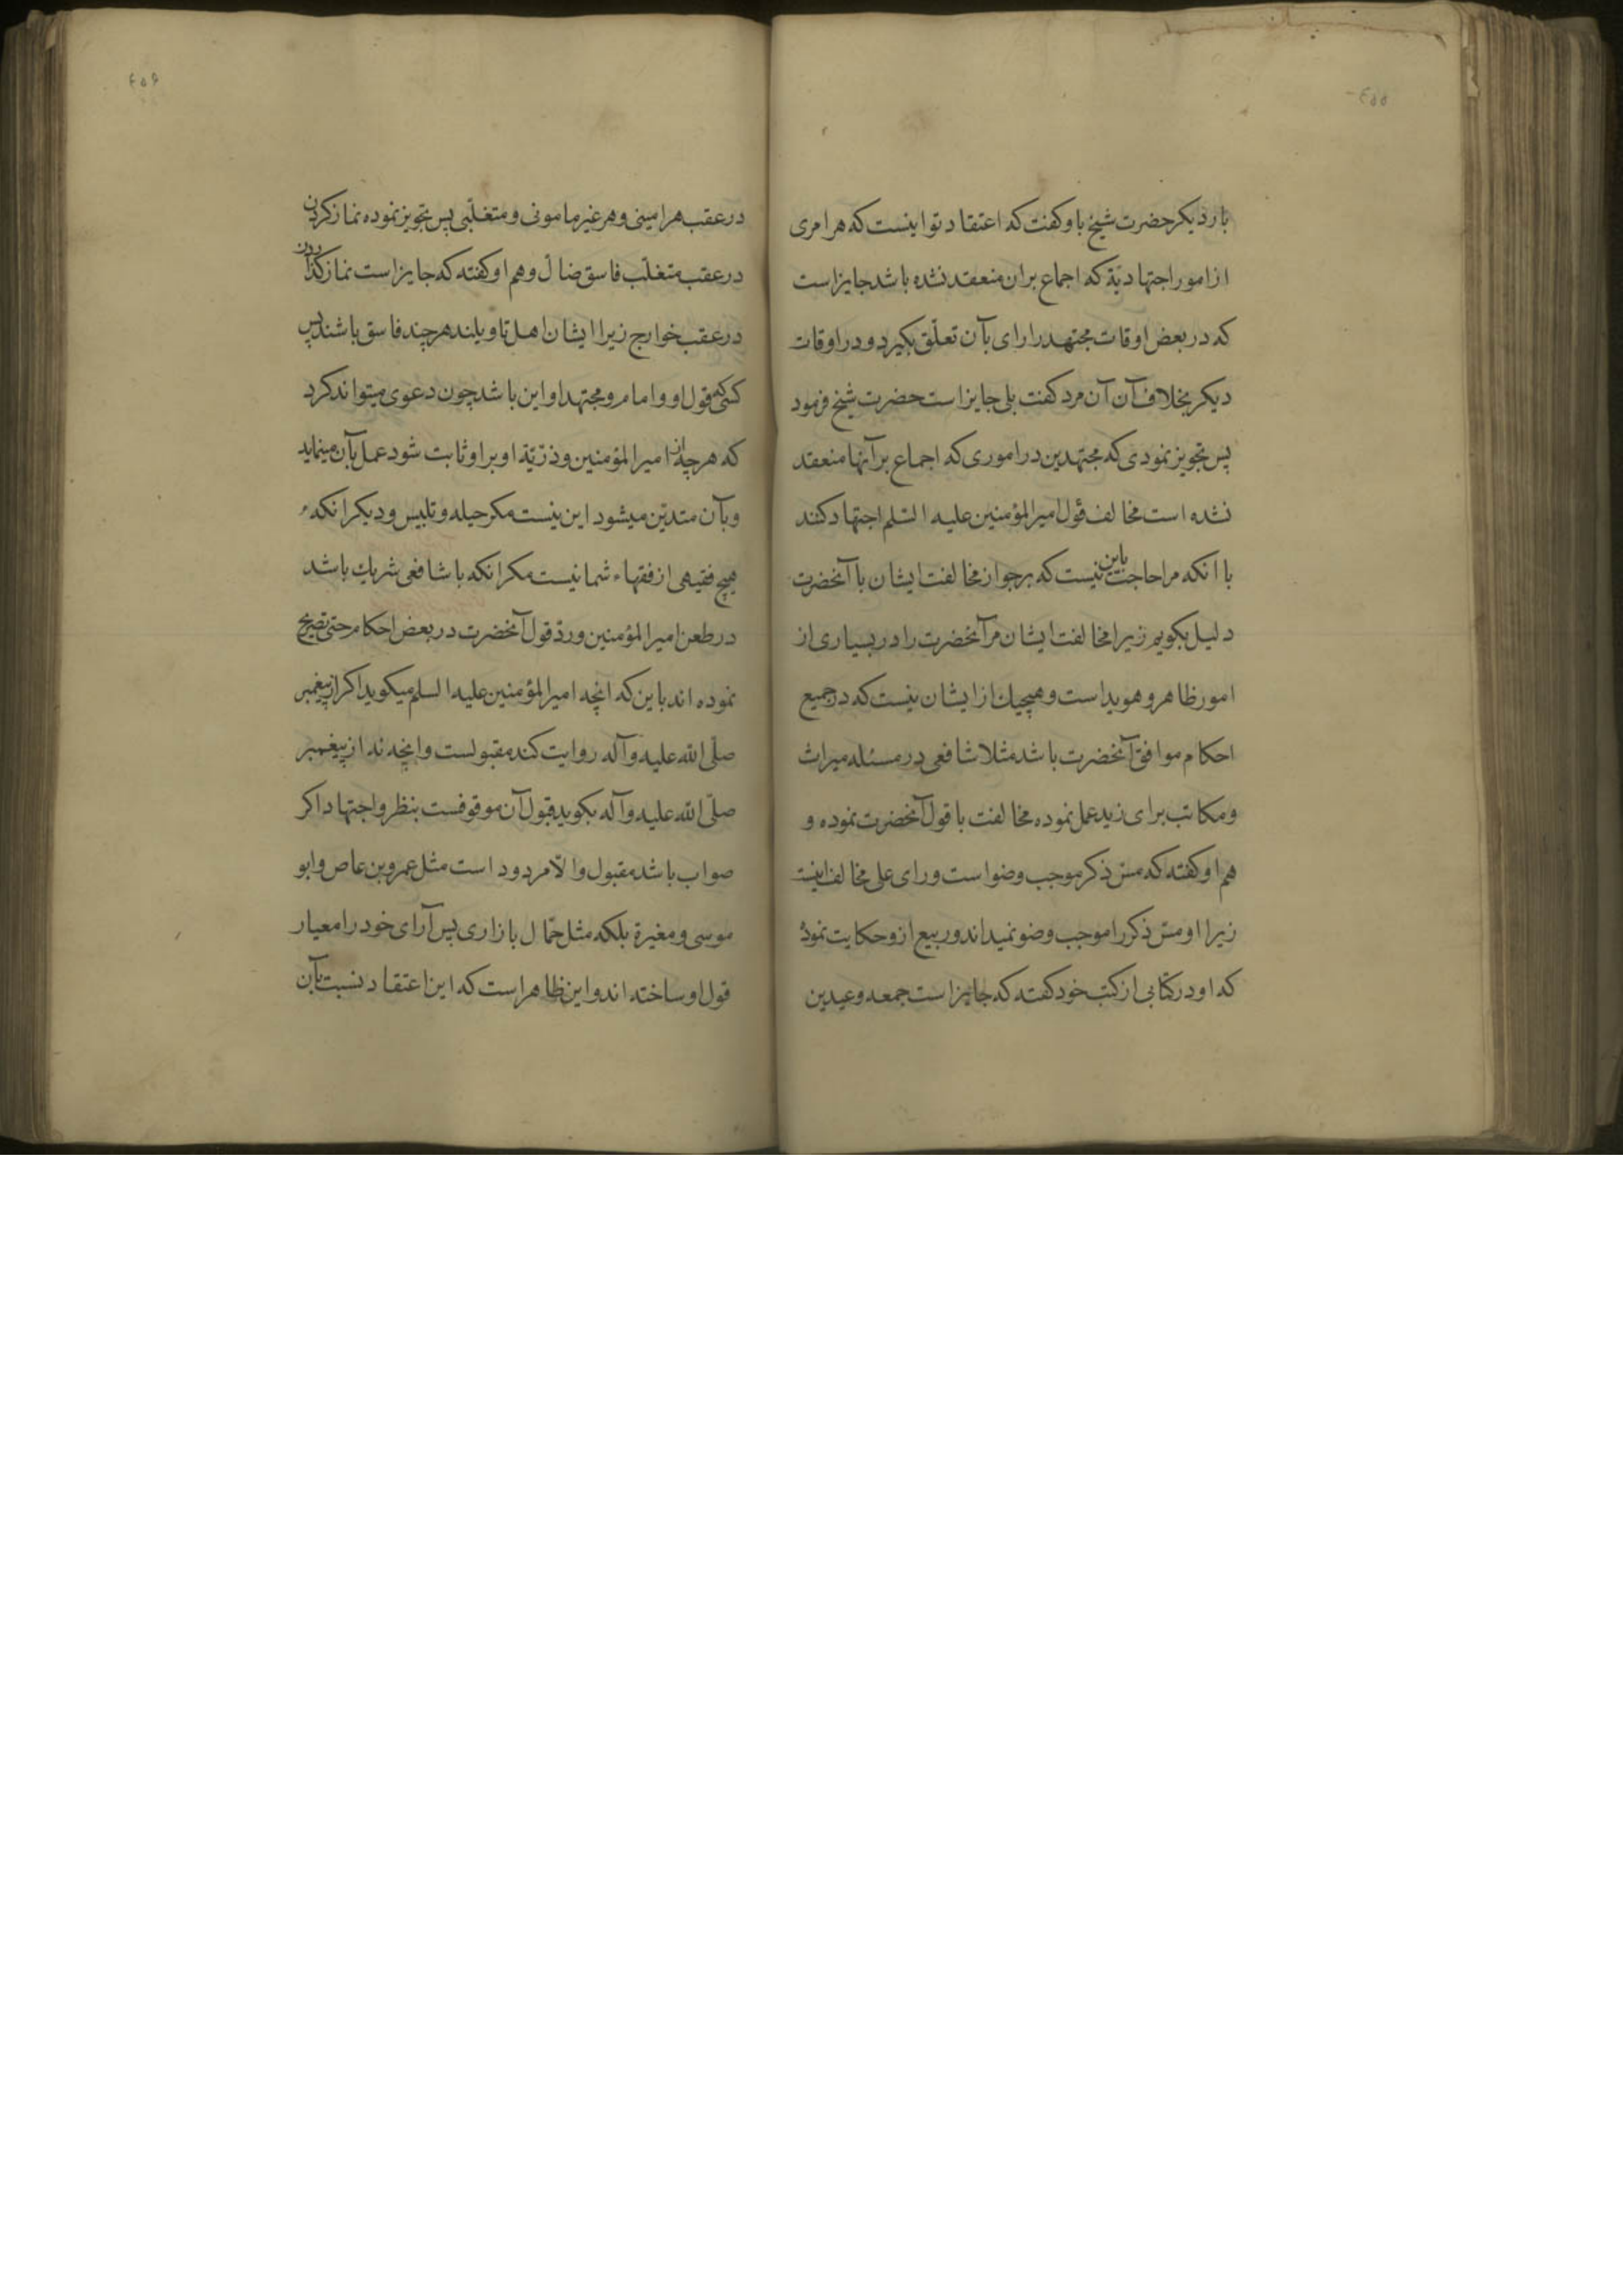 ٤٥٥
بار دیکر حضرت شیخ باو کفت که اعتقاد تو اینست که هر امری
از امور اجتهادیّة که اجماع بران منعقد نشده باشد جایز است
که در بعض اوقات مجتهد را رای بآن تعلّق بکیرد و در اوقات
دیکر بخلاف آن آن مرد کفت بلی جایز است حضرت شیخ فرمود
پس تجویز نمودی که مجتهدین در اموری که اجماع بر آنها منعقد
نشده است مخالف قول امیرالمؤمنین علیه السّلم اجتهاد کنند
با انکه مرا حاجت باین نیست که بر جواز مخالفت ایشان با آنحضرت
دلیل بکویم زیرا مخالفت ایشان مر آنحضرت را در بسیاری از
امور ظاهر و هویدا است و هیچیك از ایشان نیست که در جمیع
احکام موافق آنحضرت باشد مثلا شافعی در مسئله میراث
و مکاتب برای زید عمل نموده مخالفت با قول آنحضرت نموده و
هم او کفته که مسّ ذکر موجب وضو است و رای علی مخالف اینست
زیرا او مسّ ذکر را موجب وضو نمیداند و ربیع ازو حکایت نموده
که او در کتابی از کتب خود کفته که جایز است جمعه و عیدین
٤٥٦
در عقب هر امینی و هر غیر مامونی و متغلّبی پس تجویز نموده نماز کردن
در عقب متغلّب فاسق ضالّ و هم او کفته که جایز است نماز کذاردن
در عقب خوارج زیرا ایشان اهل تاویلند هر چند فاسق باشند پس
کسی که قول او و امام و مجتهد او این باشد چون دعوی میتواند کرد
که هر چه از امیرالمؤمنین و ذرّیّة او بر او ثابت شود عمل بآن مینماید
و بآن متدیّن میشود این نیست مکر حیله و تلبیس و دیکر انکه
هیچ فقیهی از فقهاء شما نیست مکر انکه با شافعی شریك باشد
در طعن امیرالمؤمنین و ردّ قول آنحضرت در بعض احکام حتی تصریح
نموده اند باین که آنچه امیرالمؤمنین علیه السلم میکوید اکر از پیغمبر
صلّی الله علیه وآله روایت کند مقبولست و انچه نه از پیغمبر
صلّی الله علیه وآله بکوید قبول آن موقوفست بنظر و اجتهاد اکر
صواب باشد مقبول والاّ مردود است مثل عمرو بن عاص و ابو
موسی و مغیرة بلکه مثل حمّال بازاری پس آرای خود را معیار
قول او ساخته اند و این ظاهر است که این اعتقاد نسبت بآن